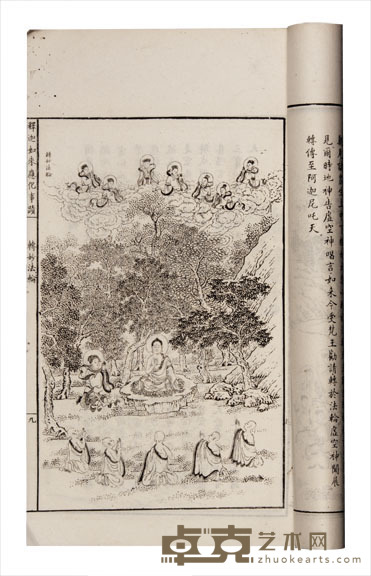 見爾時地神告虛空神唱言如來今受梵王勸請轉於法輪虛空神聞展
轉傳至阿迦尼吒天
轉玅法輪
釋迦如來應化事蹟
轉玅法輪
九
卓克艺术网
zhuokearts.com